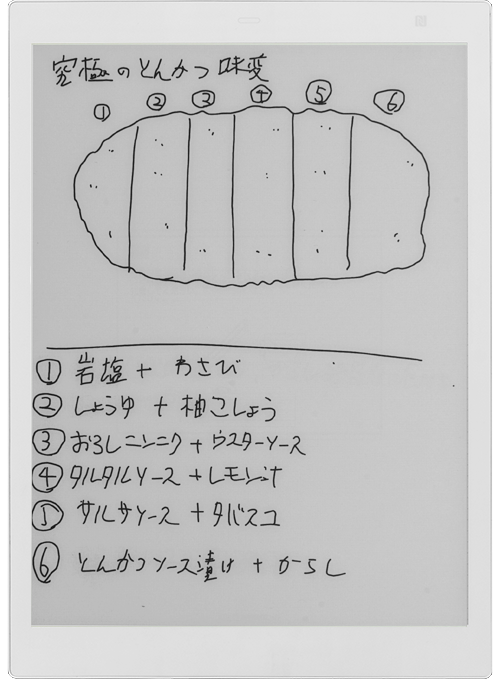 究極のとんかつ味変
① ② ③ ④ ⑤ ⑥
① 岩塩 + わさび
② しょうゆ + 柚こしょう
③ おろしニンニク + ウスターソース
④ タルタルソース + レモン汁
⑤ サルサソース + タバスコ
⑥ とんかつソース漬け + からし